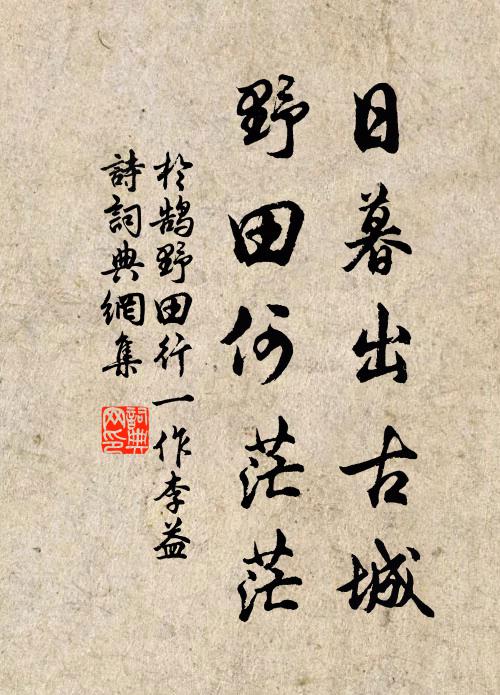 日暮出古城
野田何茫茫
於鵠野田行一作李益
詩詞典網集
詞典网印